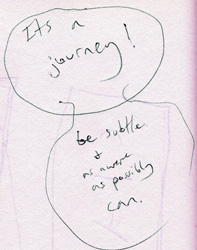 Its a
journey!
be subtle
& 
as aware
as possibly
can.